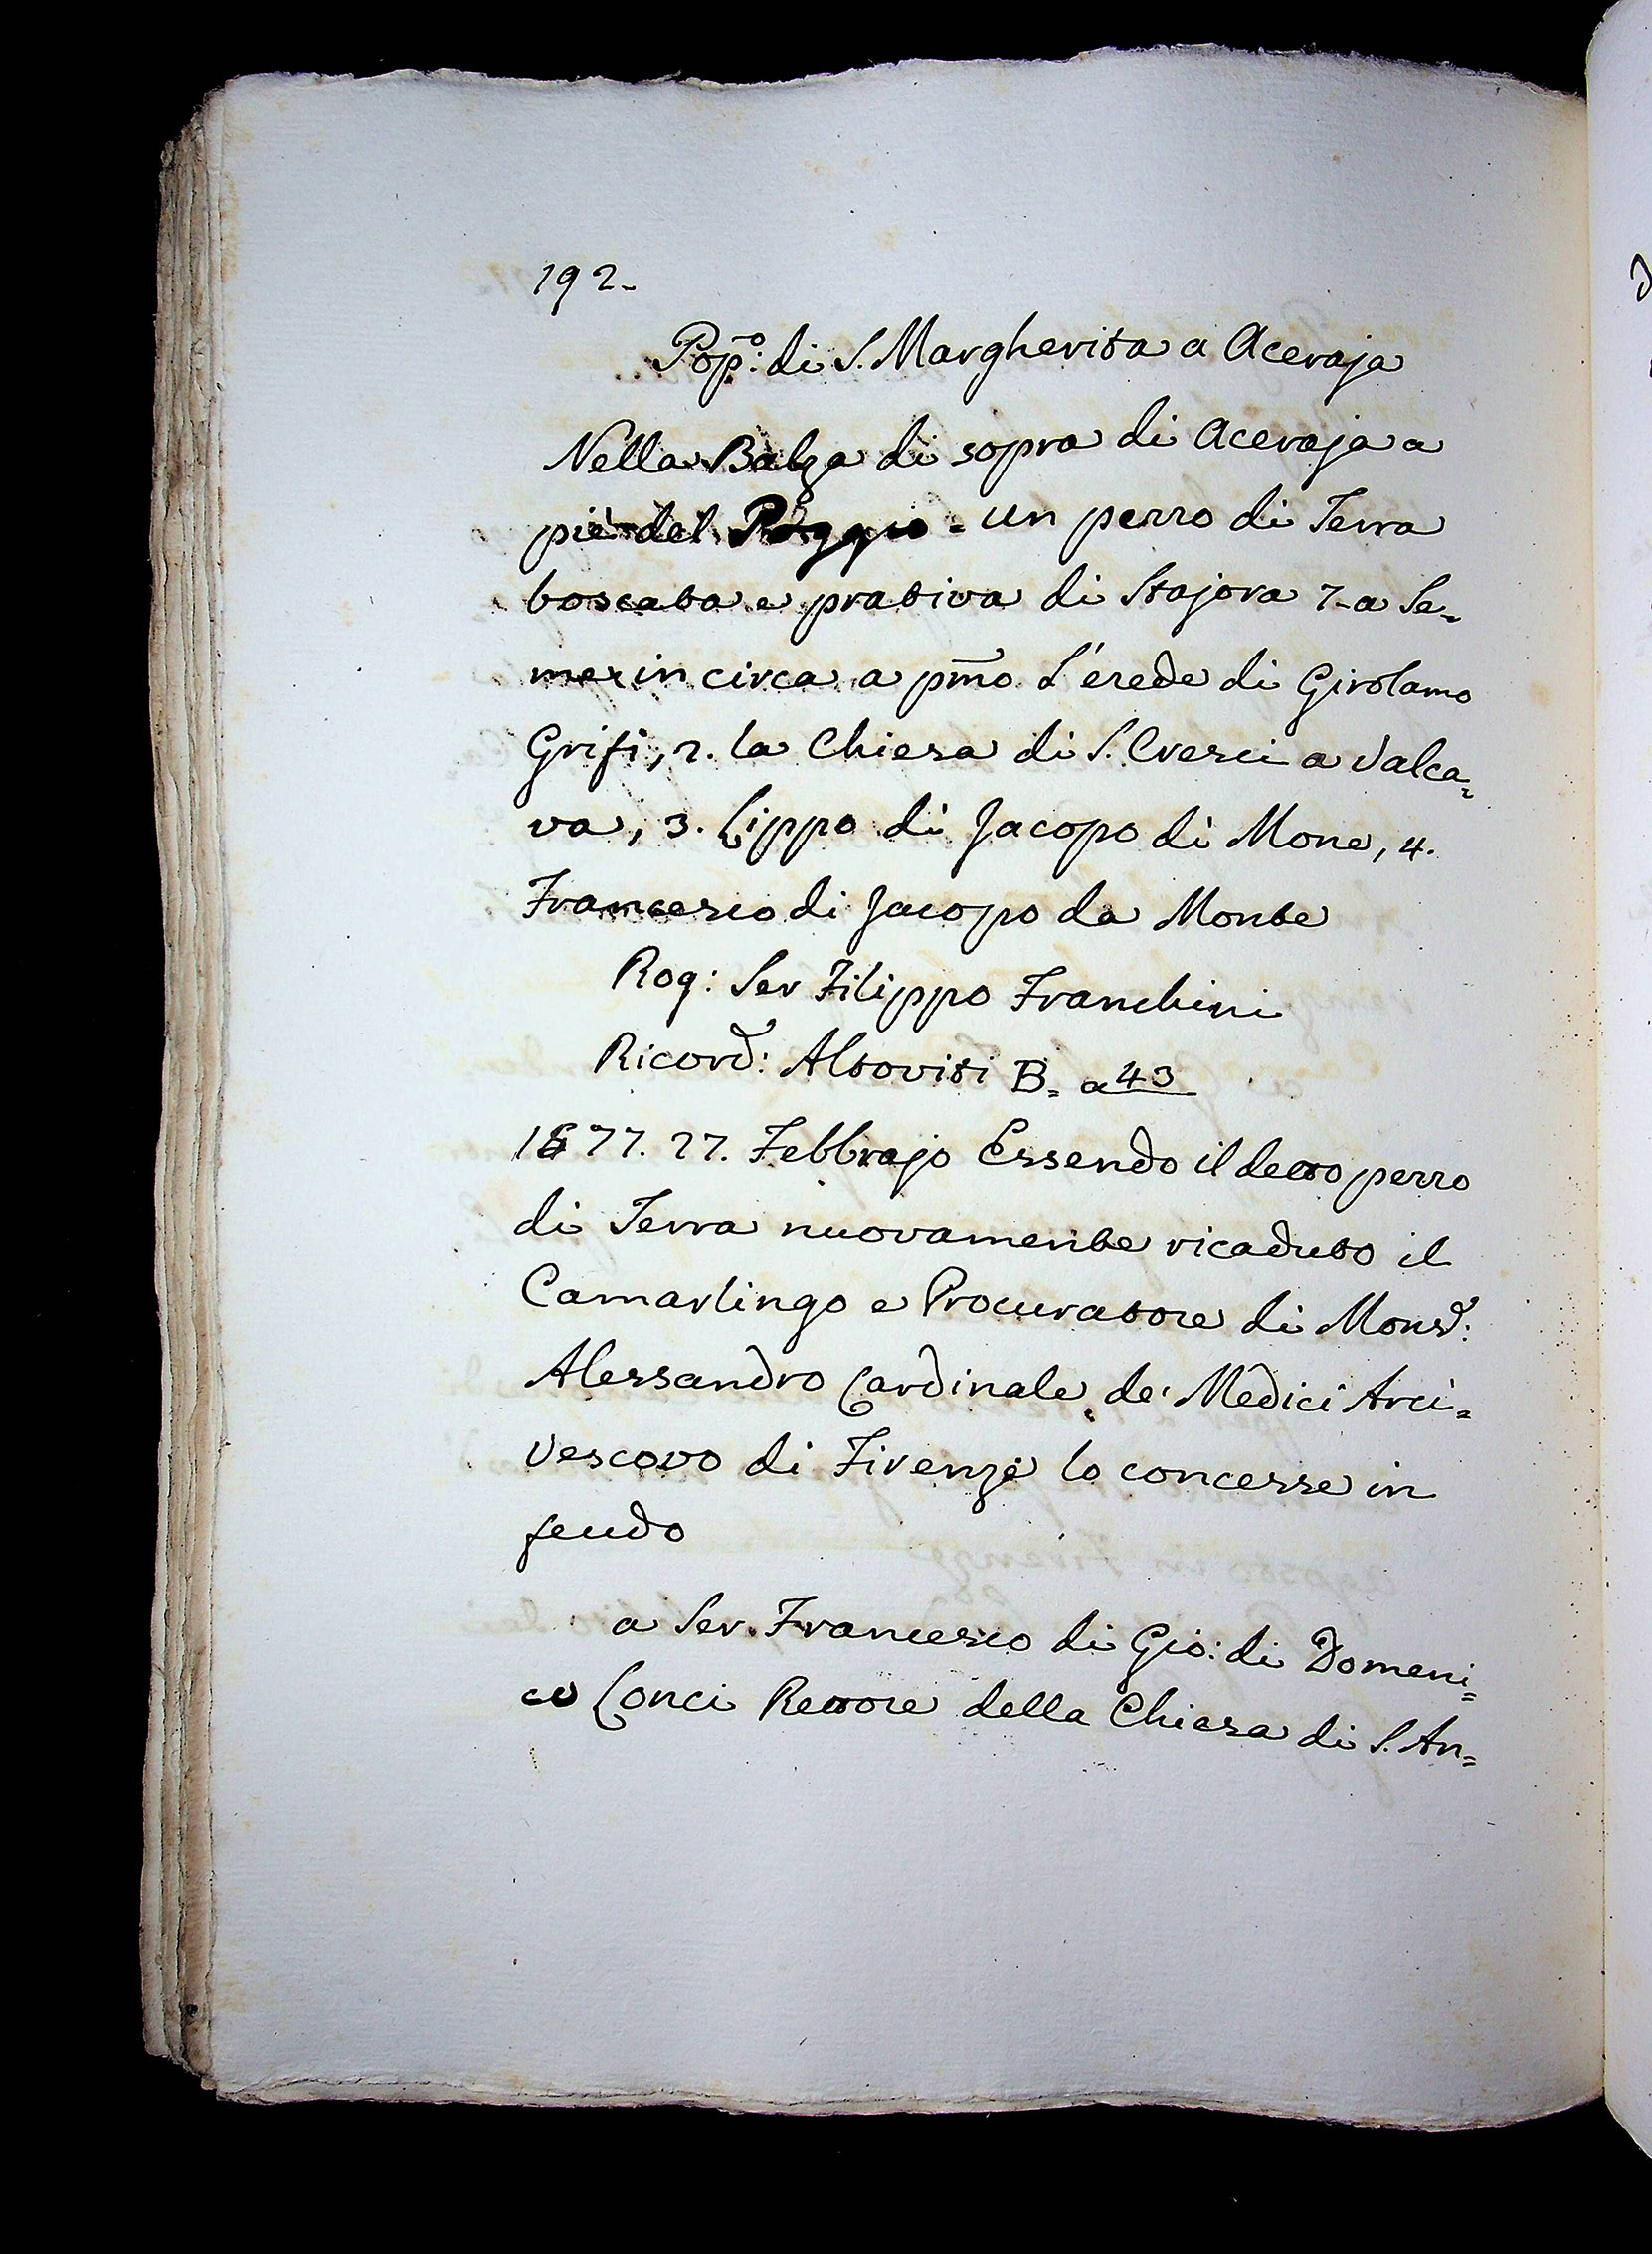 192.
Pop:º di S. Margherita a Aceraja
Nella Balza di sopra di Aceraja a
piè del Poggio - un pezzo di Terra
boscata e prativa di Stajora 7- a Se-
me in circa a pmo L'erede di Girolamo
Grifi, 2. la Chiesa di S. Cresci a Valca=
va, 3. Lippo di Jacopo di Mone, 4.
Francesco di Jacopo da Monte
Rog: Ser Filippo Franchini
Ricord: Altoviti B= a 43
1577. 27. Febbrajo Essendo il detto pezzo
di Terra nuovamente ricaduto il
Camarlingo e Procuratore di Monsr:
Alessandro Cardinale de' Medici Arci=
vescovo di Firenze lo concesse in
feudo
a Ser Francesco di Gio: di Domeni=
co Conci Rettore della Chiesa di S. An=